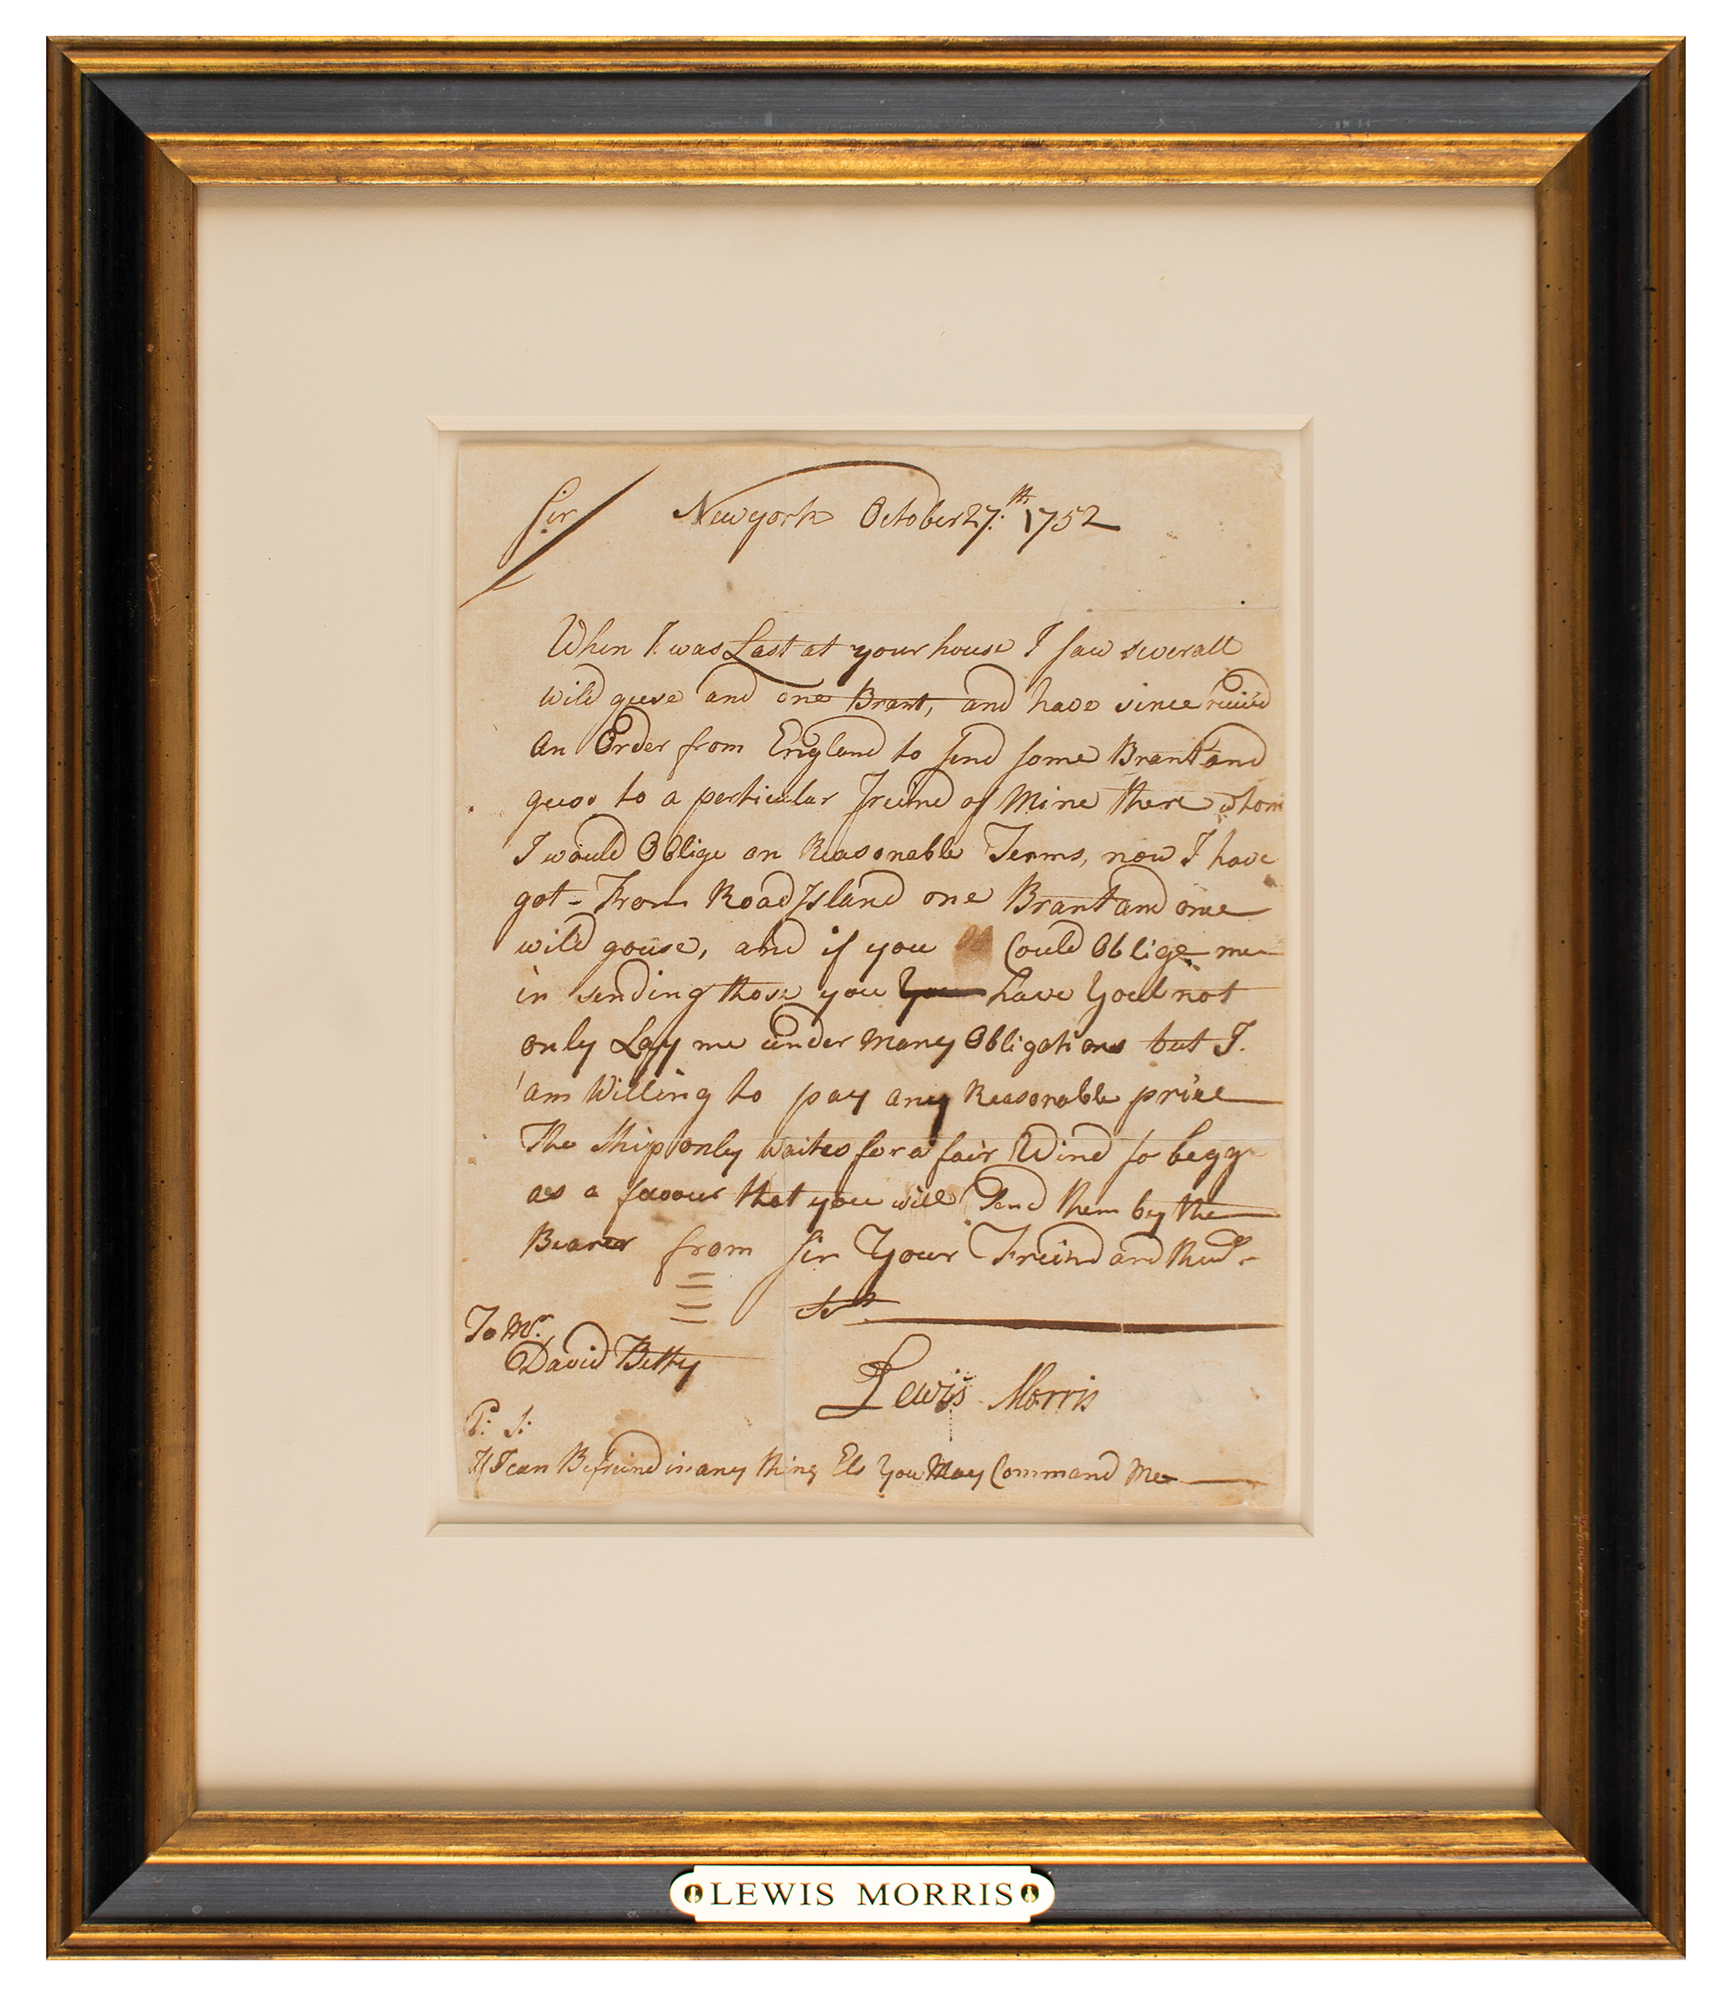 Sir
Newyork October 27.th 1752
When I was Last at your house I saw severall
wild geese and one Brant, and have since reciv'd
an Order from England to send some Brant and
geese to a perticular freind of Mine there whom
I would Oblige on Reasonable Terms, now I have
got - From Road Island one Brant and one
wild goose, and if you Could Oblige me
in sending those you You have Youl not
only Lay me under Many Obligations but I.
am Willing to pay any Reasonable price
The Ship only waites for a fair Wind so begg
as a favour that you will Send them by the
Bearer from Sir Your Freind and
To Mr.
David Betty
Lewis Morris
P: S:
If I can Befreind in any thing Els You May Command Me
LEWIS MORRIS